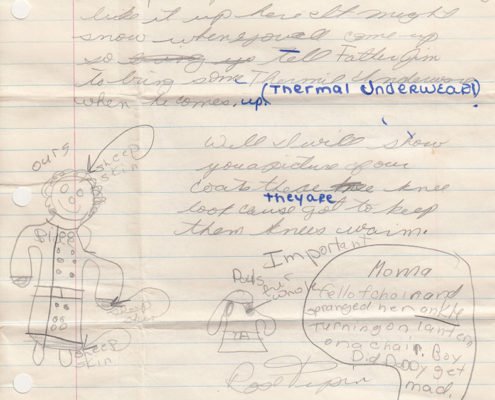 like it up here. It might
snow when you all come up
so tell Father Jim
to bring some Thermil Underwear
when he comes. up. (Thermal Underwear!)
Well I will show
you a picture of our
coats these knee
they are
look cause got to keep
them knees warm.
ours
sheep
skin
Important
Momma
fell of chair and
spranged her ankle
turning on lantern
on a chair. Boy
Did Daddy get
mad.
sheep
skin